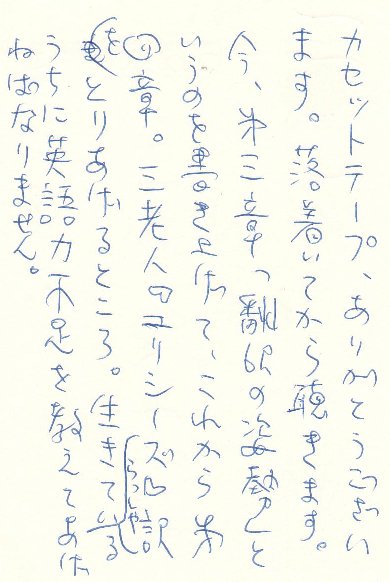 カセットテープ、ありがとうござい
ます。落着いてから聴きます。
今、㐧三章「翻訳の姿勢」と
いうのを書き上げて、これから㐧
四章。三老人のユリシーズ訳
をとりあげるところ。生きている
らっしゃ
うちに英語力不足を教えてあげ
ねばなりません。